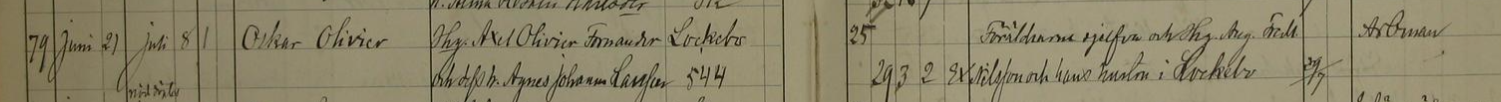 79 Juni 21 Juli 8 1 Oskar Olivier Thg. Axel Olivier Fornander Lockebo 25 Föräldrarne sjelfva och Thg Aug. Fredr A. Öman
och dess h. Agnes Johanna Larsson 544 29 3 2 Ex Nilsson och hans hustru i Lockebo 29/7
nöddöpt